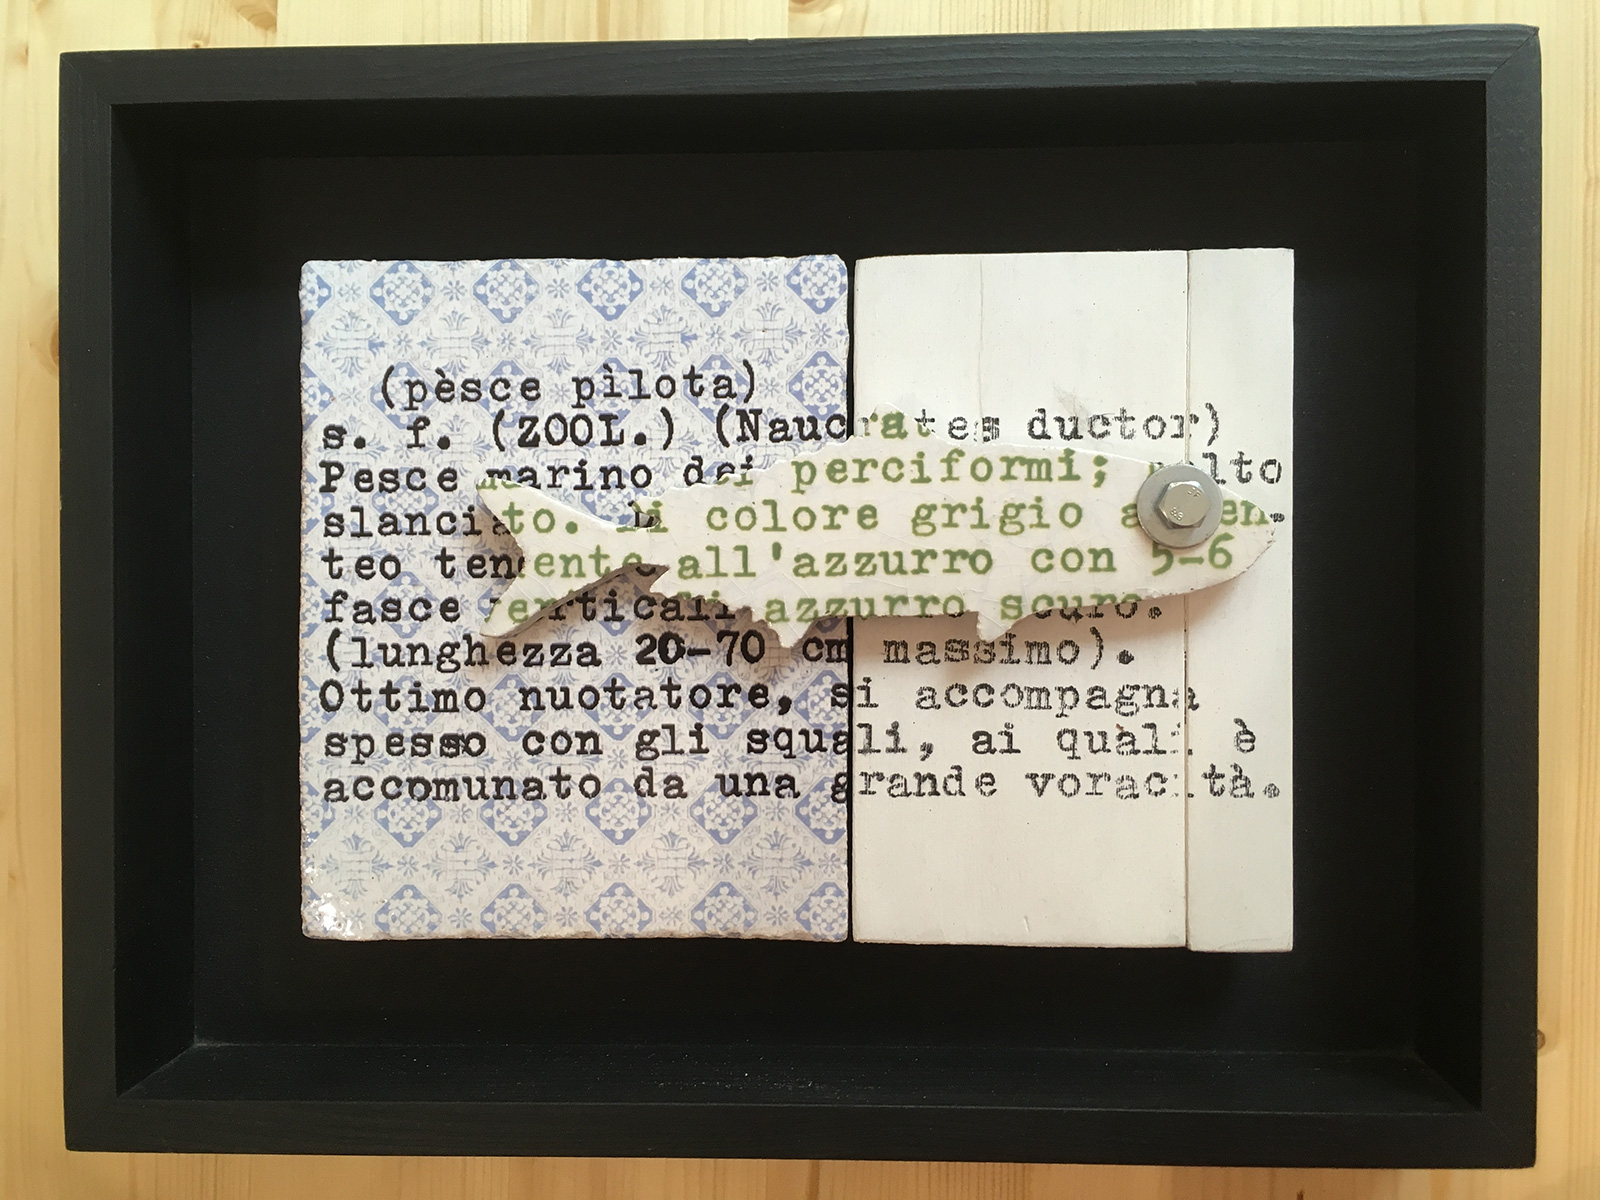 (pèsce pìlota)
s. f. (ZOOL.) (Naucrates ductor)
Pesce marino dei perciformi; molto
slanciato. Di colore grigio argen-
teo tendente all'azzurro con 5-6
fasce verticali di azzurro scuro.
(lunghezza 20-70 cm massimo).
Ottimo nuotatore, si accompagna
spesso con gli squali, ai quàli è
accomunato da una grande voracità.